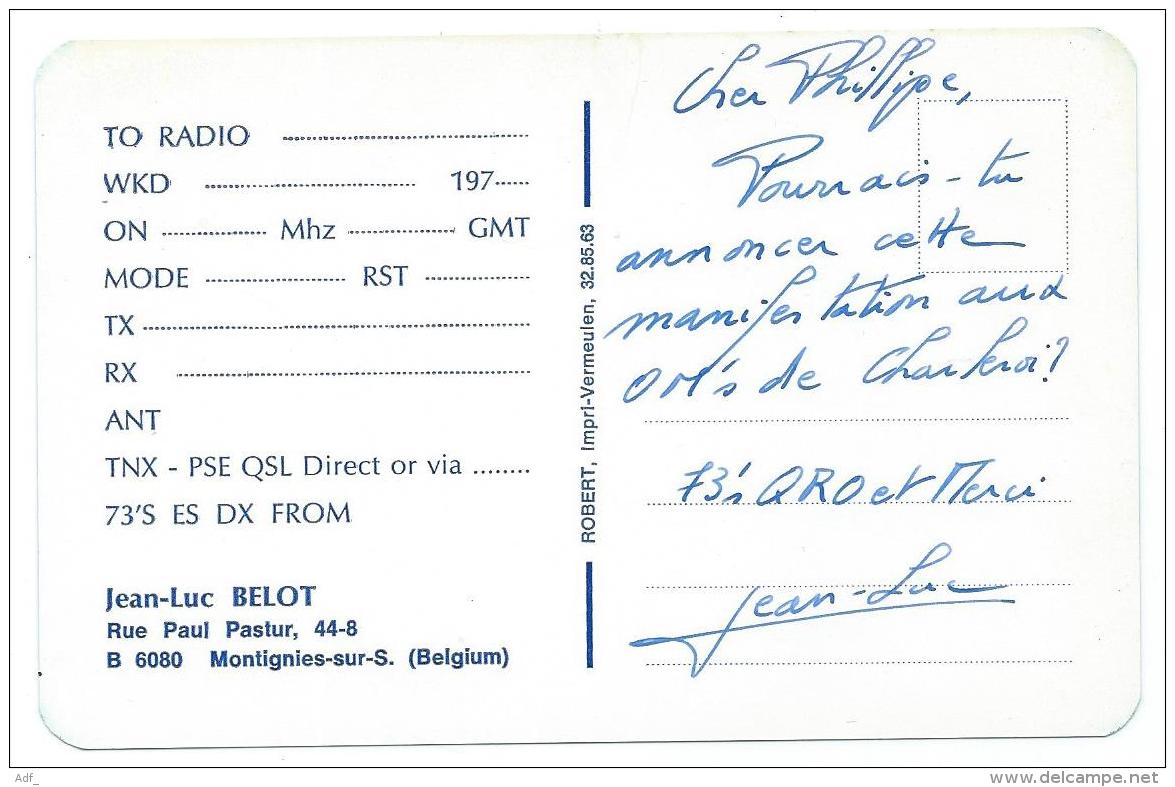 TO RADIO ........................
WKD ........................ 197.....
ON ............ Mhz ............ GMT
MODE ............ RST ............
TX ........................
RX ........................
ANT
TNX - PSE QSL Direct or via ........
73'S ES DX FROM
Jean-Luc BELOT
Rue Paul Pastur, 44-8
B 6080 Montignies-sur-S. (Belgium)
ROBERT, Impri-Vermeulen, 32.85.63
Cher Phillipe,
Pourrais-tu
annoncer cette
manifestation aux
OM's de Charleroi?
73's QRO et Merci
Jean-Luc
Adf_
www.delcampe.net